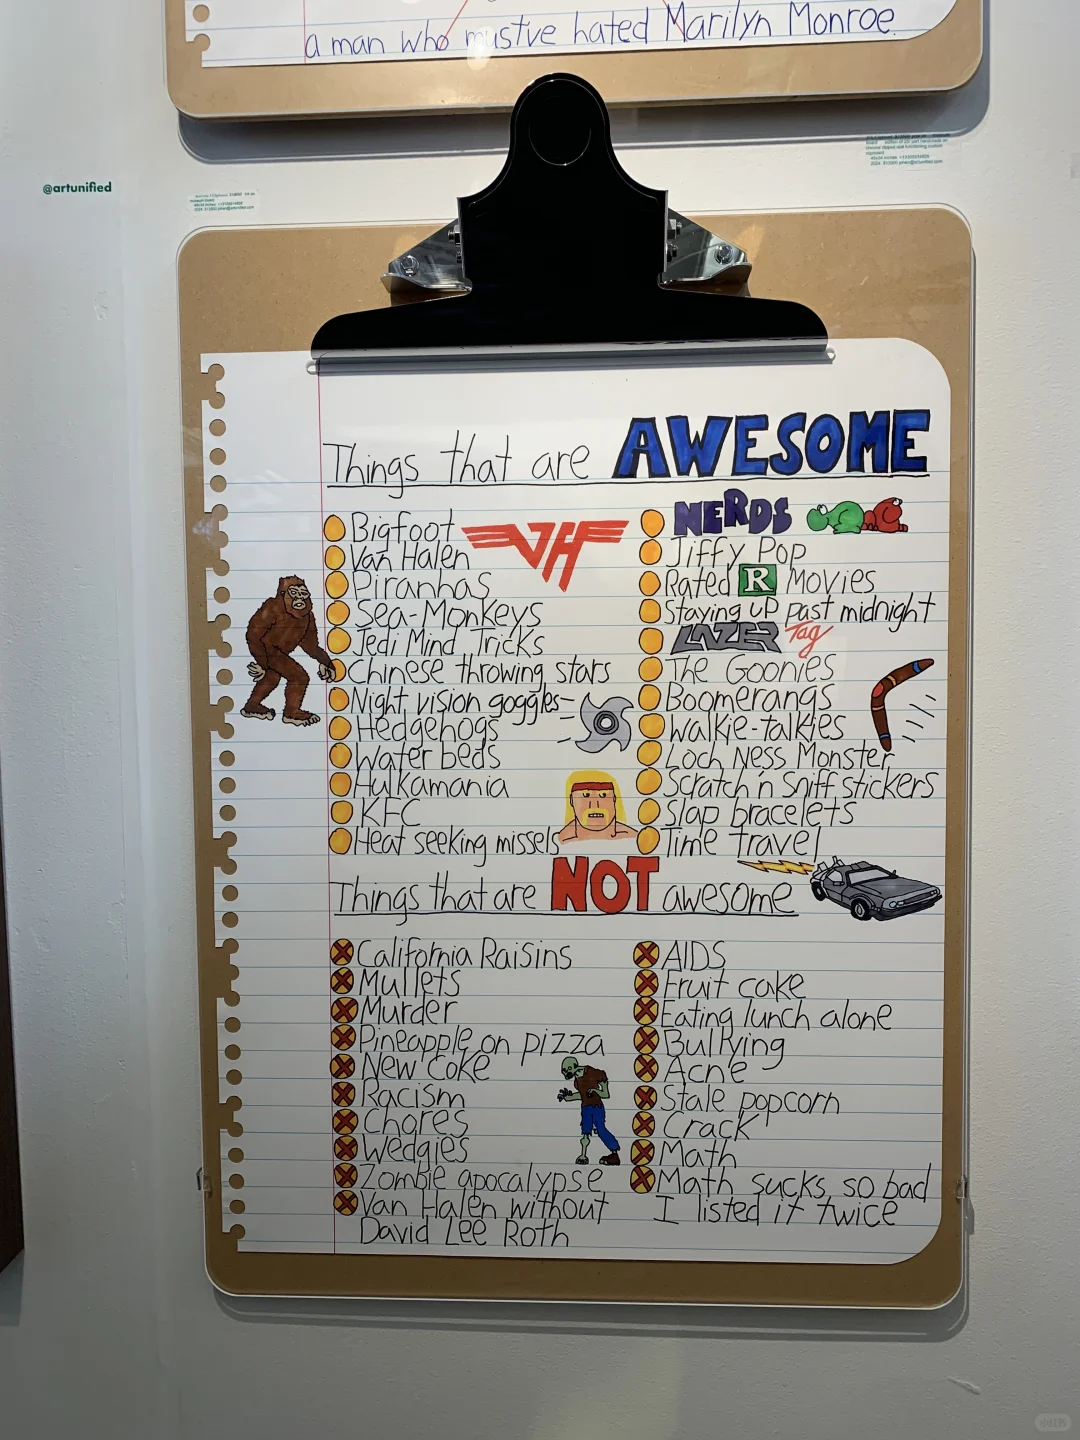 a man who mustve hated Marilyn Monroe.
@artunified
Things that are AWESOME
Bigfoot
Van Halen
VH
Piranhas
Sea-Monkeys
Jedi Mind Tricks
Chinese throwing stars
Night vision goggles
Hedgehogs
Water beds
Hulkamania
KFC
Heat seeking missels
NERDS
Jiffy Pop
Rated R Movies
Staying up past midnight
LAZER Tag
The Goonies
Boomerangs
Walkie-talkies
Loch Ness Monster
Scratch n' Sniff stickers
Slap bracelets
Time travel
Things that are NOT awesome
California Raisins
Mullets
Murder
Pineapple on pizza
New Coke
Racism
Chores
Wedgies
Zombie apocalypse
Van Halen without
David Lee Roth
AIDS
Fruit cake
Eating lunch alone
Bullying
Acne
Stale popcorn
Crack
Math
Math sucks so bad
I listed it twice